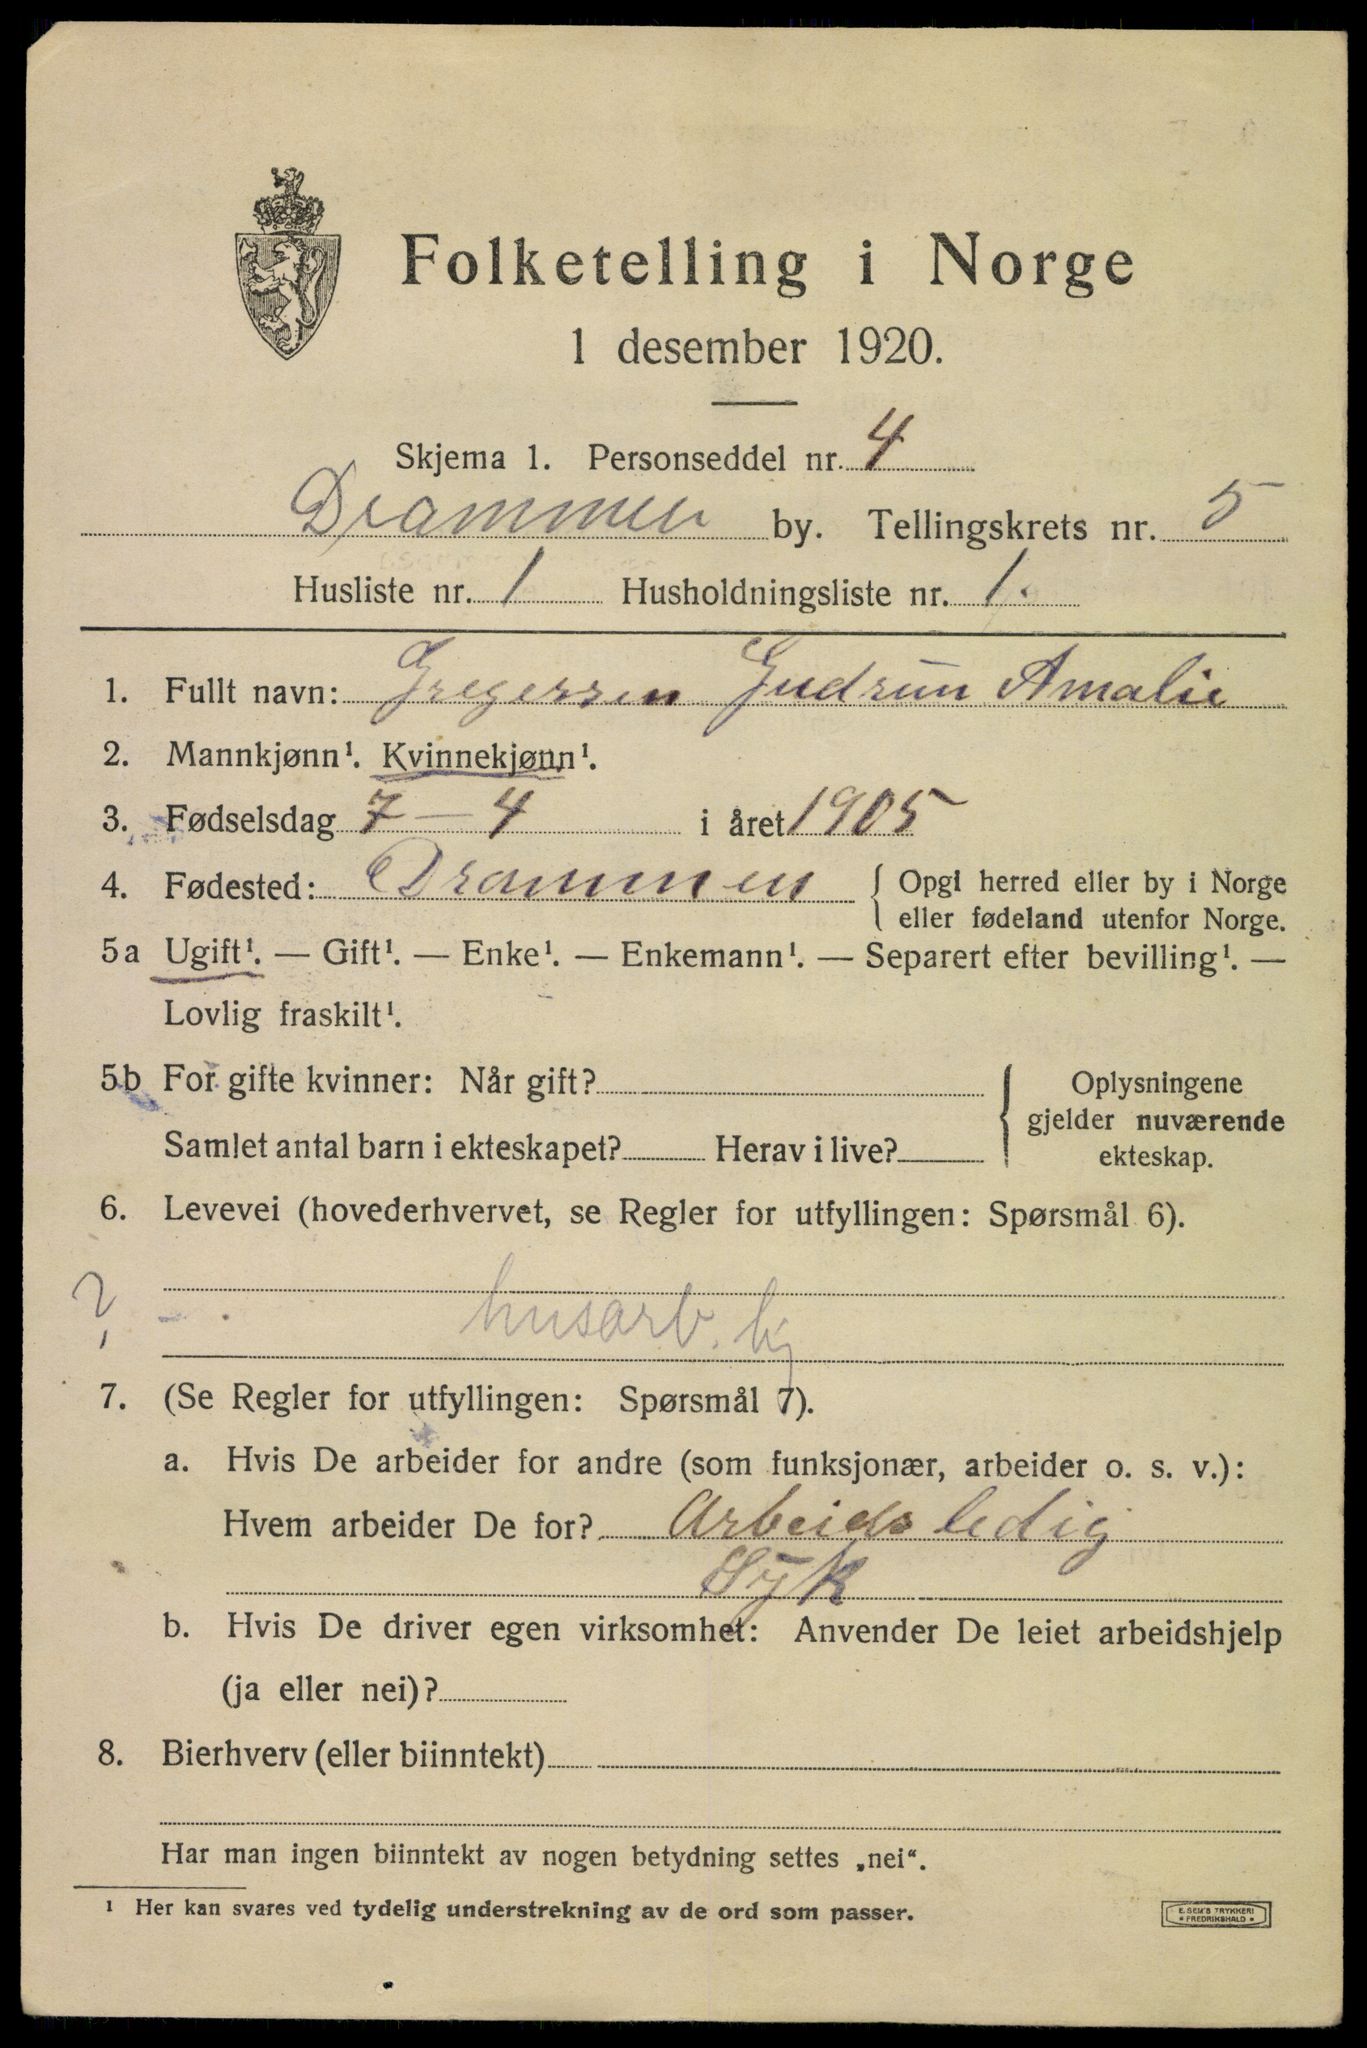 Folketelling i Norge
1 desember 1920.
Skjema 1. Personseddel nr. 4
Drammen by. Tellingskrets nr. 5
Husliste nr. 1 Husholdningsliste nr. 1.
1. Fullt navn: Gregersen Gudrun Amalie
2. Mannkjønn¹. Kvinnekjønn¹.
3. Fødselsdag 7 – 4 i året 1905
4. Fødested: Drammen { Opgi herred eller by i Norge
eller fødeland utenfor Norge.
5a Ugift¹. — Gift¹. — Enke¹. — Enkemann¹. — Separert efter bevilling¹. —
Lovlig fraskilt¹.
5b For gifte kvinner: Når gift? { Oplysningene
gjelder nuværende
Samlet antal barn i ekteskapet? Herav i live?
ekteskap.
6. Levevei (hovederhvervet, se Regler for utfyllingen: Spørsmål 6).
?
husarb. hj
7. (Se Regler for utfyllingen: Spørsmål 7).
a. Hvis De arbeider for andre (som funksjonær, arbeider o. s. v.):
Hvem arbeider De for? Arbeids ledig
Syk
b. Hvis De driver egen virksomhet: Anvender De leiet arbeidshjelp
(ja eller nei)?
8. Bierhverv (eller biinntekt)
Har man ingen biinntekt av nogen betydning settes „nei“.
¹ Her kan svares ved tydelig understrekning av de ord som passer.
E. SEM'S TRYKKERI
* FREDRIKSHALD *